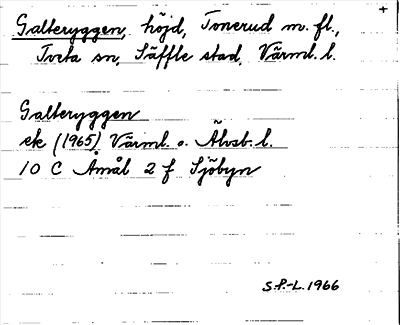 Galteryggen, höjd, Tonerud m. fl.,
Tveta sn, Säffle stad, Värml. l.
Galteryggen
ek (1965) Värml. o. Älvsb. l.
10 C Åmål 2 f Sjöbyn
S.P.-L. 1966